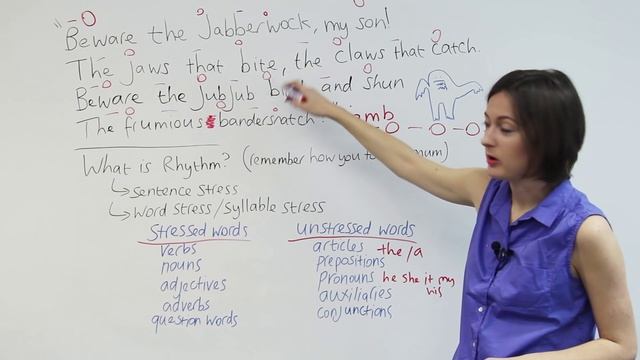 "Beware the Jabberwock, my son!
The jaws that bite, the claws that catch.
Beware the Jubjub and shun
The frumious bandersnatch!"
iamb
What is Rhythm? (remember how you to mum)
Sentence stress
Word stress/syllable stress
Stressed words
verbs
nouns
adjectives
adverbs
question words
Unstressed words
articles the/a
prepositions
pronouns he she it my
his
auxiliaries
conjunctions